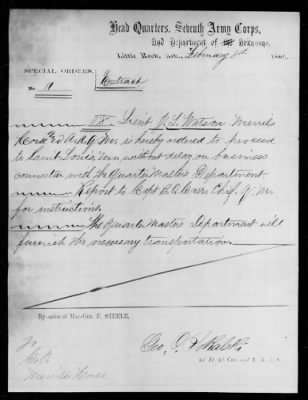 Head Quarters, Seventh Army Corps,
And Department of Arkansas,
Little Rock, Ark., February 8th 186
SPECIAL ORDERS,
Extract
No.
Lieut. Watson Merrill's
Horse A. A. Q. M. is hereby ordered to proceed
to Saint Louis, without delay on business
connected with the Quarter Masters Department.
Report to Capt B. O. Carr Chf. Q. M.
for instructions.
The Quarter Masters Department will
furnish the necessary transportation.
By order of Maj.-Gen. F. STEELE.
Geo. O. Sokalski
Merrills Horse